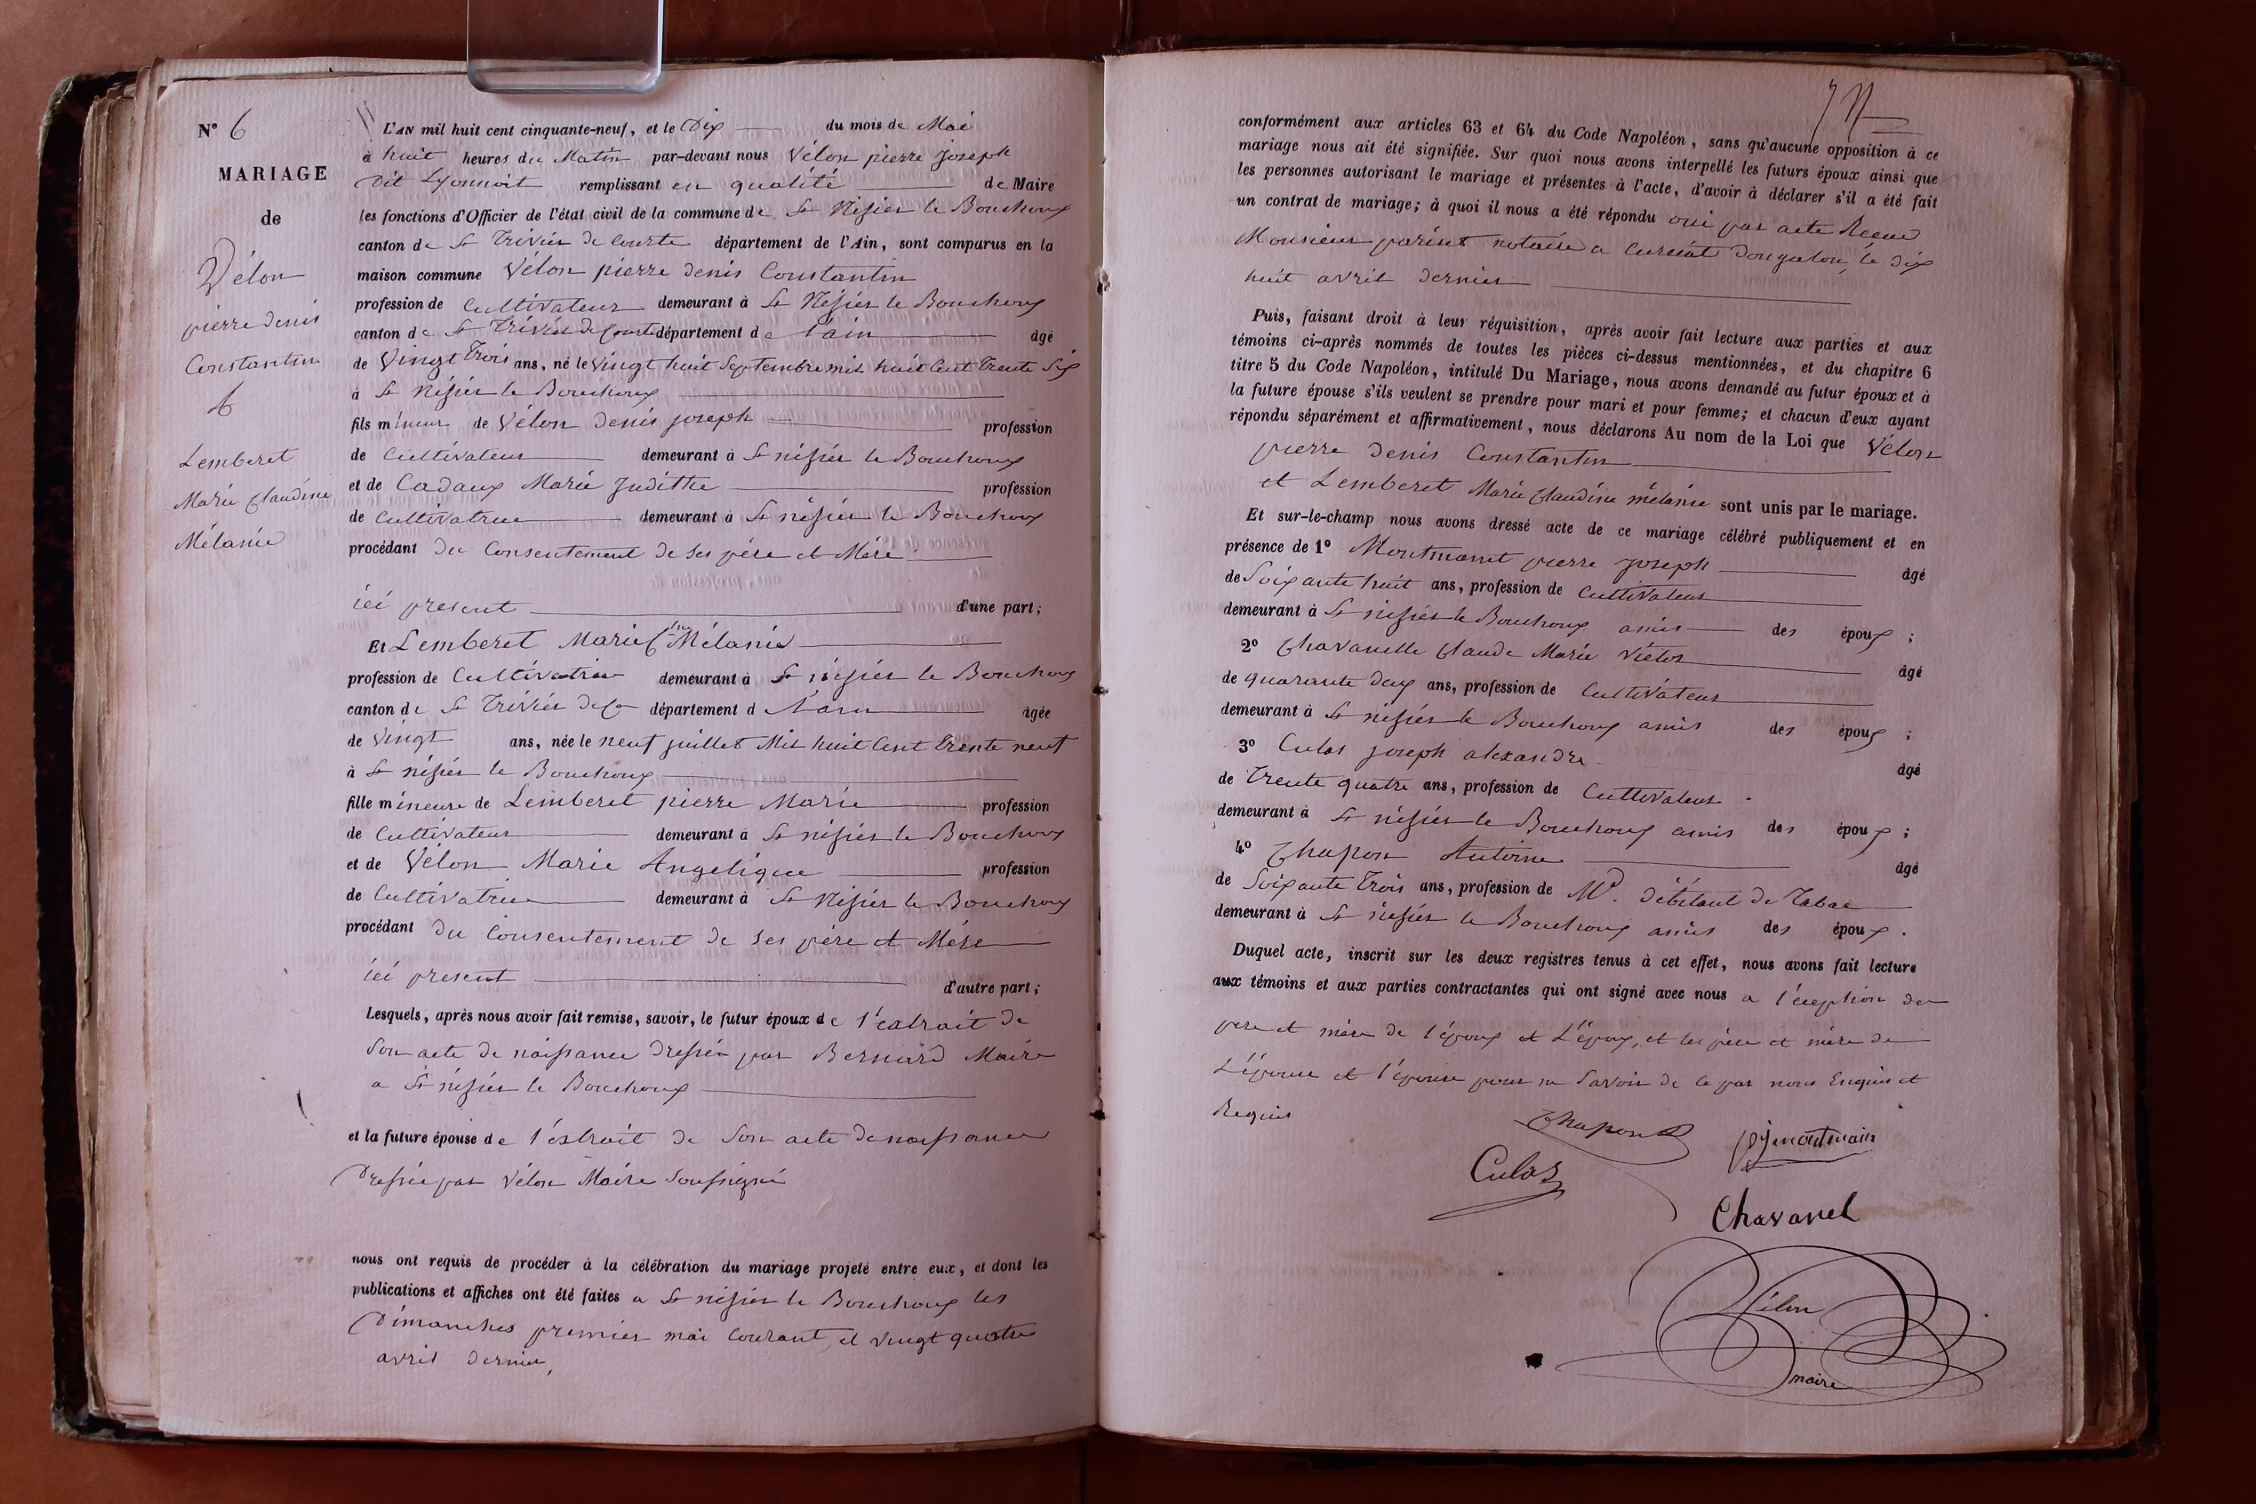 N° 6
MARIAGE
de
Vélon
pierre denis
Constantin
&
Lemberet
Marie Claudine
Mélanie
L'AN mil huit cent cinquante-neuf, et le Dix du mois de Mai
à huit heures du Matin par-devant nous Vélon pierre joseph
dit Lyonnoit remplissant en qualité de Maire
les fonctions d'Officier de l'état civil de la commune de St Nisier le Bouchoux
canton de St Trivier de Courte département de l'Ain, sont comparus en la
maison commune Vélon pierre denis Constantin
profession de Cultivateur demeurant à St Nisier le Bouchoux
canton de St Trivier de Courte département de l'ain âgé
de Vingt Trois ans, né le Vingt huit Septembre mil huit Cent Trente Six
à St Nisier le Bouchoux
fils mineur de Vélon Denis joseph profession
de Cultivateur demeurant à St nisier le Bouchoux
et de Cadaux Marie Judithe profession
de Cultivatrice demeurant à St nisier le Bouchoux
procédant du Consentement de Ses père et Mère
ici présent d'une part;
Et Lemberet Marie Cne Mélanie
profession de Cultivatrice demeurant à St nisier le Bouchoux
canton de St Trivier de Co département d l'ain âgée
de Vingt ans, née le neuf juillet Mil huit Cent trente neuf
à St nisier le Bouchoux
fille mineure de Lemberet pierre Marie profession
de Cultivateur demeurant à St nisier le Bouchoux
et de Vélon Marie Angelique profession
de Cultivatrice demeurant à St Nisier le Bouchoux
procédant du Consentement de Ses père et Mère
ici présent d'autre part;
Lesquels, après nous avoir fait remise, savoir, le futur époux de l'extrait de
Son acte de naissance dressée par Bernard Maire
a St nisier le Bouchoux
et la future épouse de l'extrait de Son acte de naissance
Dressée par Vélon Maire Soussigné
nous ont requis de procéder à la célébration du mariage projeté entre eux, et dont les
publications et affiches ont été faites a St nisier le Bouchoux les
Dimanches premier mai Courant, et vingt quatre
avril dernier,
conformément aux articles 63 et 64 du Code Napoléon, sans qu'aucune opposition à ce
mariage nous ait été signifiée. Sur quoi nous avons interpellé les futurs époux ainsi que
les personnes autorisant le mariage et présentes à l'acte, d'avoir à déclarer s'il a été fait
un contrat de mariage; à quoi il nous a été répondu oui par acte Recue
Monsieur notaire a Curciat Dongalon, le dix
huit avril dernier
Puis, faisant droit à leur réquisition, après avoir fait lecture aux parties et aux
témoins ci-après nommés de toutes les pièces ci-dessus mentionnées, et du chapitre 6
titre 5 du Code Napoléon, intitulé Du Mariage, nous avons demandé au futur époux et à
la future épouse s'ils veulent se prendre pour mari et pour femme; et chacun d'eux ayant
répondu séparément et affirmativement, nous déclarons Au nom de la Loi que Vélon
pierre denis Constantin
et Lemberet Marie Claudine mélanie sont unis par le mariage.
Et sur-le-champ nous avons dressé acte de ce mariage célébré publiquement et en
présence de 1° pierre joseph âgé
de Soixante huit ans, profession de Cultivateur
demeurant à St nisier le Bouchoux amis des époux;
2° Chavanelle Claude Marie Victor âgé
de quarante deux ans, profession de Cultivateur
demeurant à St nisier le Bouchoux amis des époux;
3° Culas joseph alexandre âgé
de Trente quatre ans, profession de Cultivateur
demeurant à St nisier le Bouchoux amis des époux;
4° Chapon Antoine âgé
de Soixante Trois ans, profession de Md. débitant de Tabac
demeurant à St nisier le Bouchoux amis des époux.
Duquel acte, inscrit sur les deux registres tenus à cet effet, nous avons fait lecture
aux témoins et aux parties contractantes qui ont signé avec nous a l'éception des
père et mère de l'époux et L'époux, et les père et mère de
L'épouse et l'épouse pour ne Savoir de ce par nous Enquis et
Requis
Chapon
pjmontmain
Culas
Chavanel
Vélon
maire